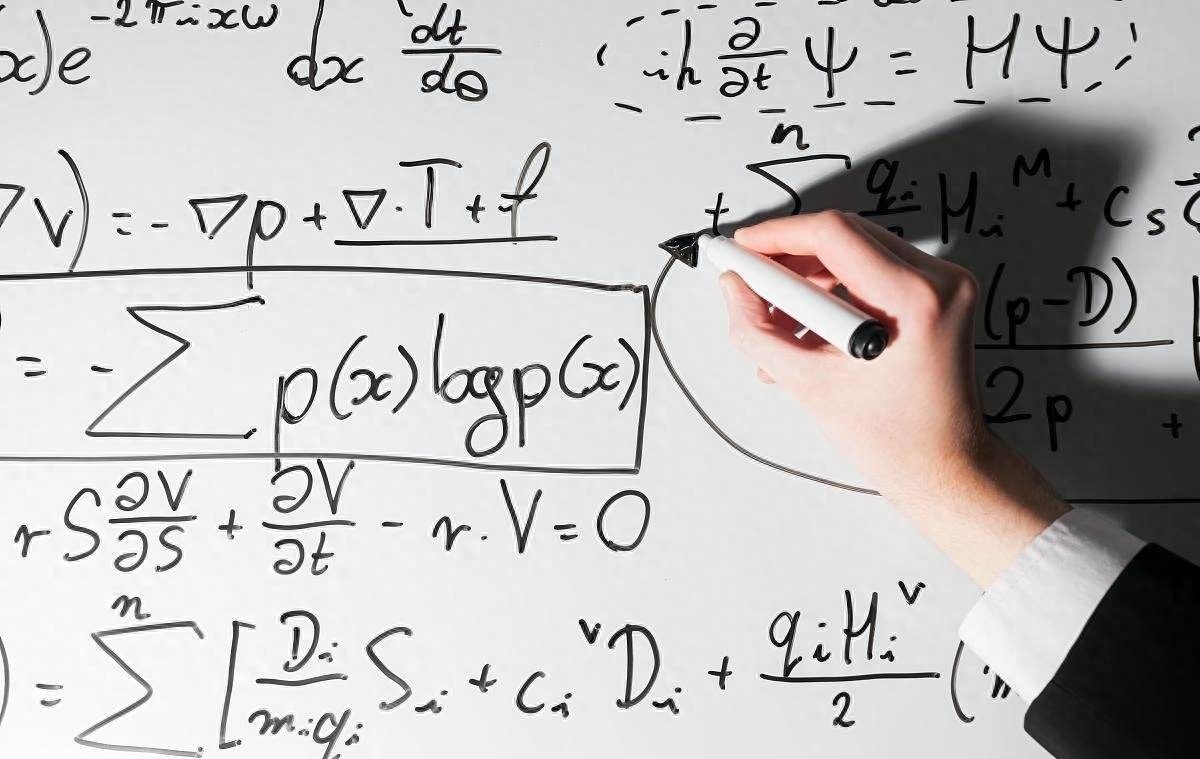 x)e^{-2πixω} dx dt/dθ
iℏ ∂/∂t Ψ = HΨ
∇v) = - ∇p + ∇·T + f
+ n ∑ q_i H_i^M + c_s
= - ∑ p(x) log p(x)
(p-D) / 2p +
rS ∂V/∂S + ∂V/∂t - r·V = 0
) = n ∑ [ D_i/m_i q_i S_i + c_i ^v D_i + q_i H_i^v / 2 (